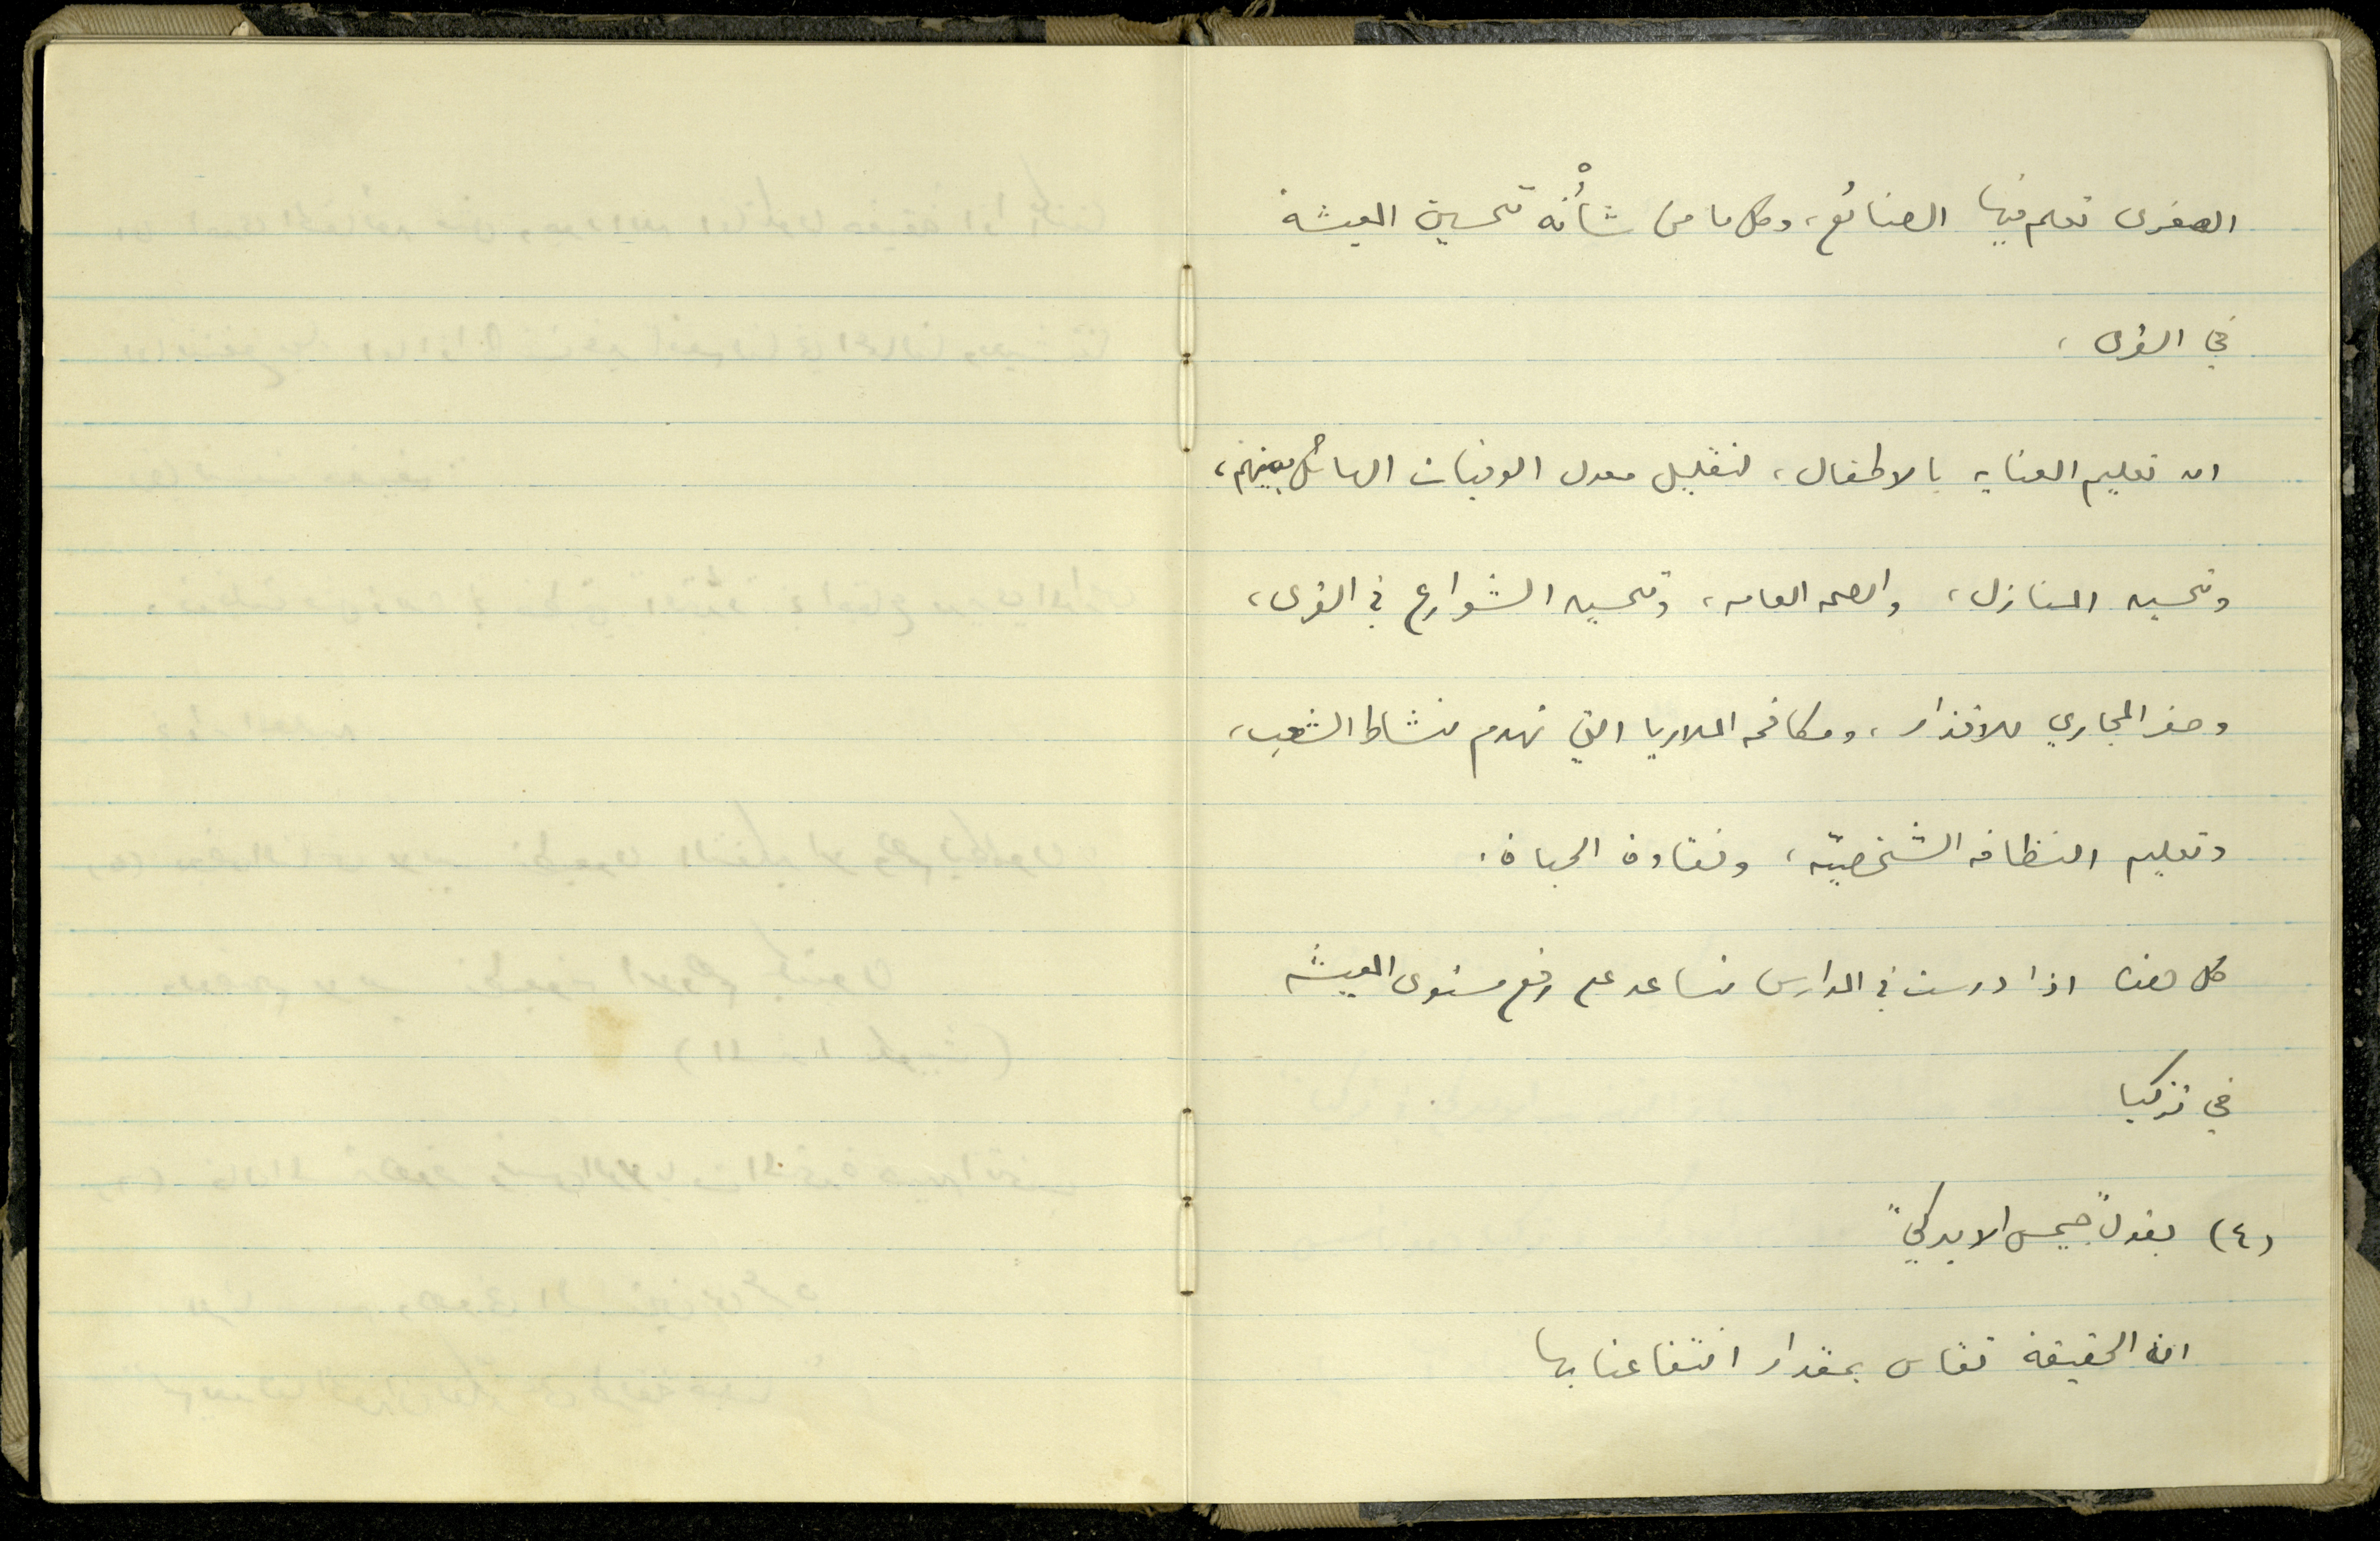 الصغرى تعلم فيها الصنائع، وكل ما من شأنه تحسين المعيشة
في القرى،
ان تعليم العنايه بالاطفال، لتقليل معدل الوفيات الهائل بينهم،
وتحسين المنازل، والصحه العامه، وتحسين الشوارع في القرى،
وحفر المجاري للاقذار، ومكافحه الملاريا التي تهدم نشاط الشعب،
وتعليم النظافه الشخصيّه، ونقاوة الحياة.
كل هذا اذا درست في المدارس تساعد على رفع مستوى المعيشه
في تركيا
(٤) يقول "جيمس الاميركي"
ان الحقيقة تقاس بمقدار انتفاعنا بها